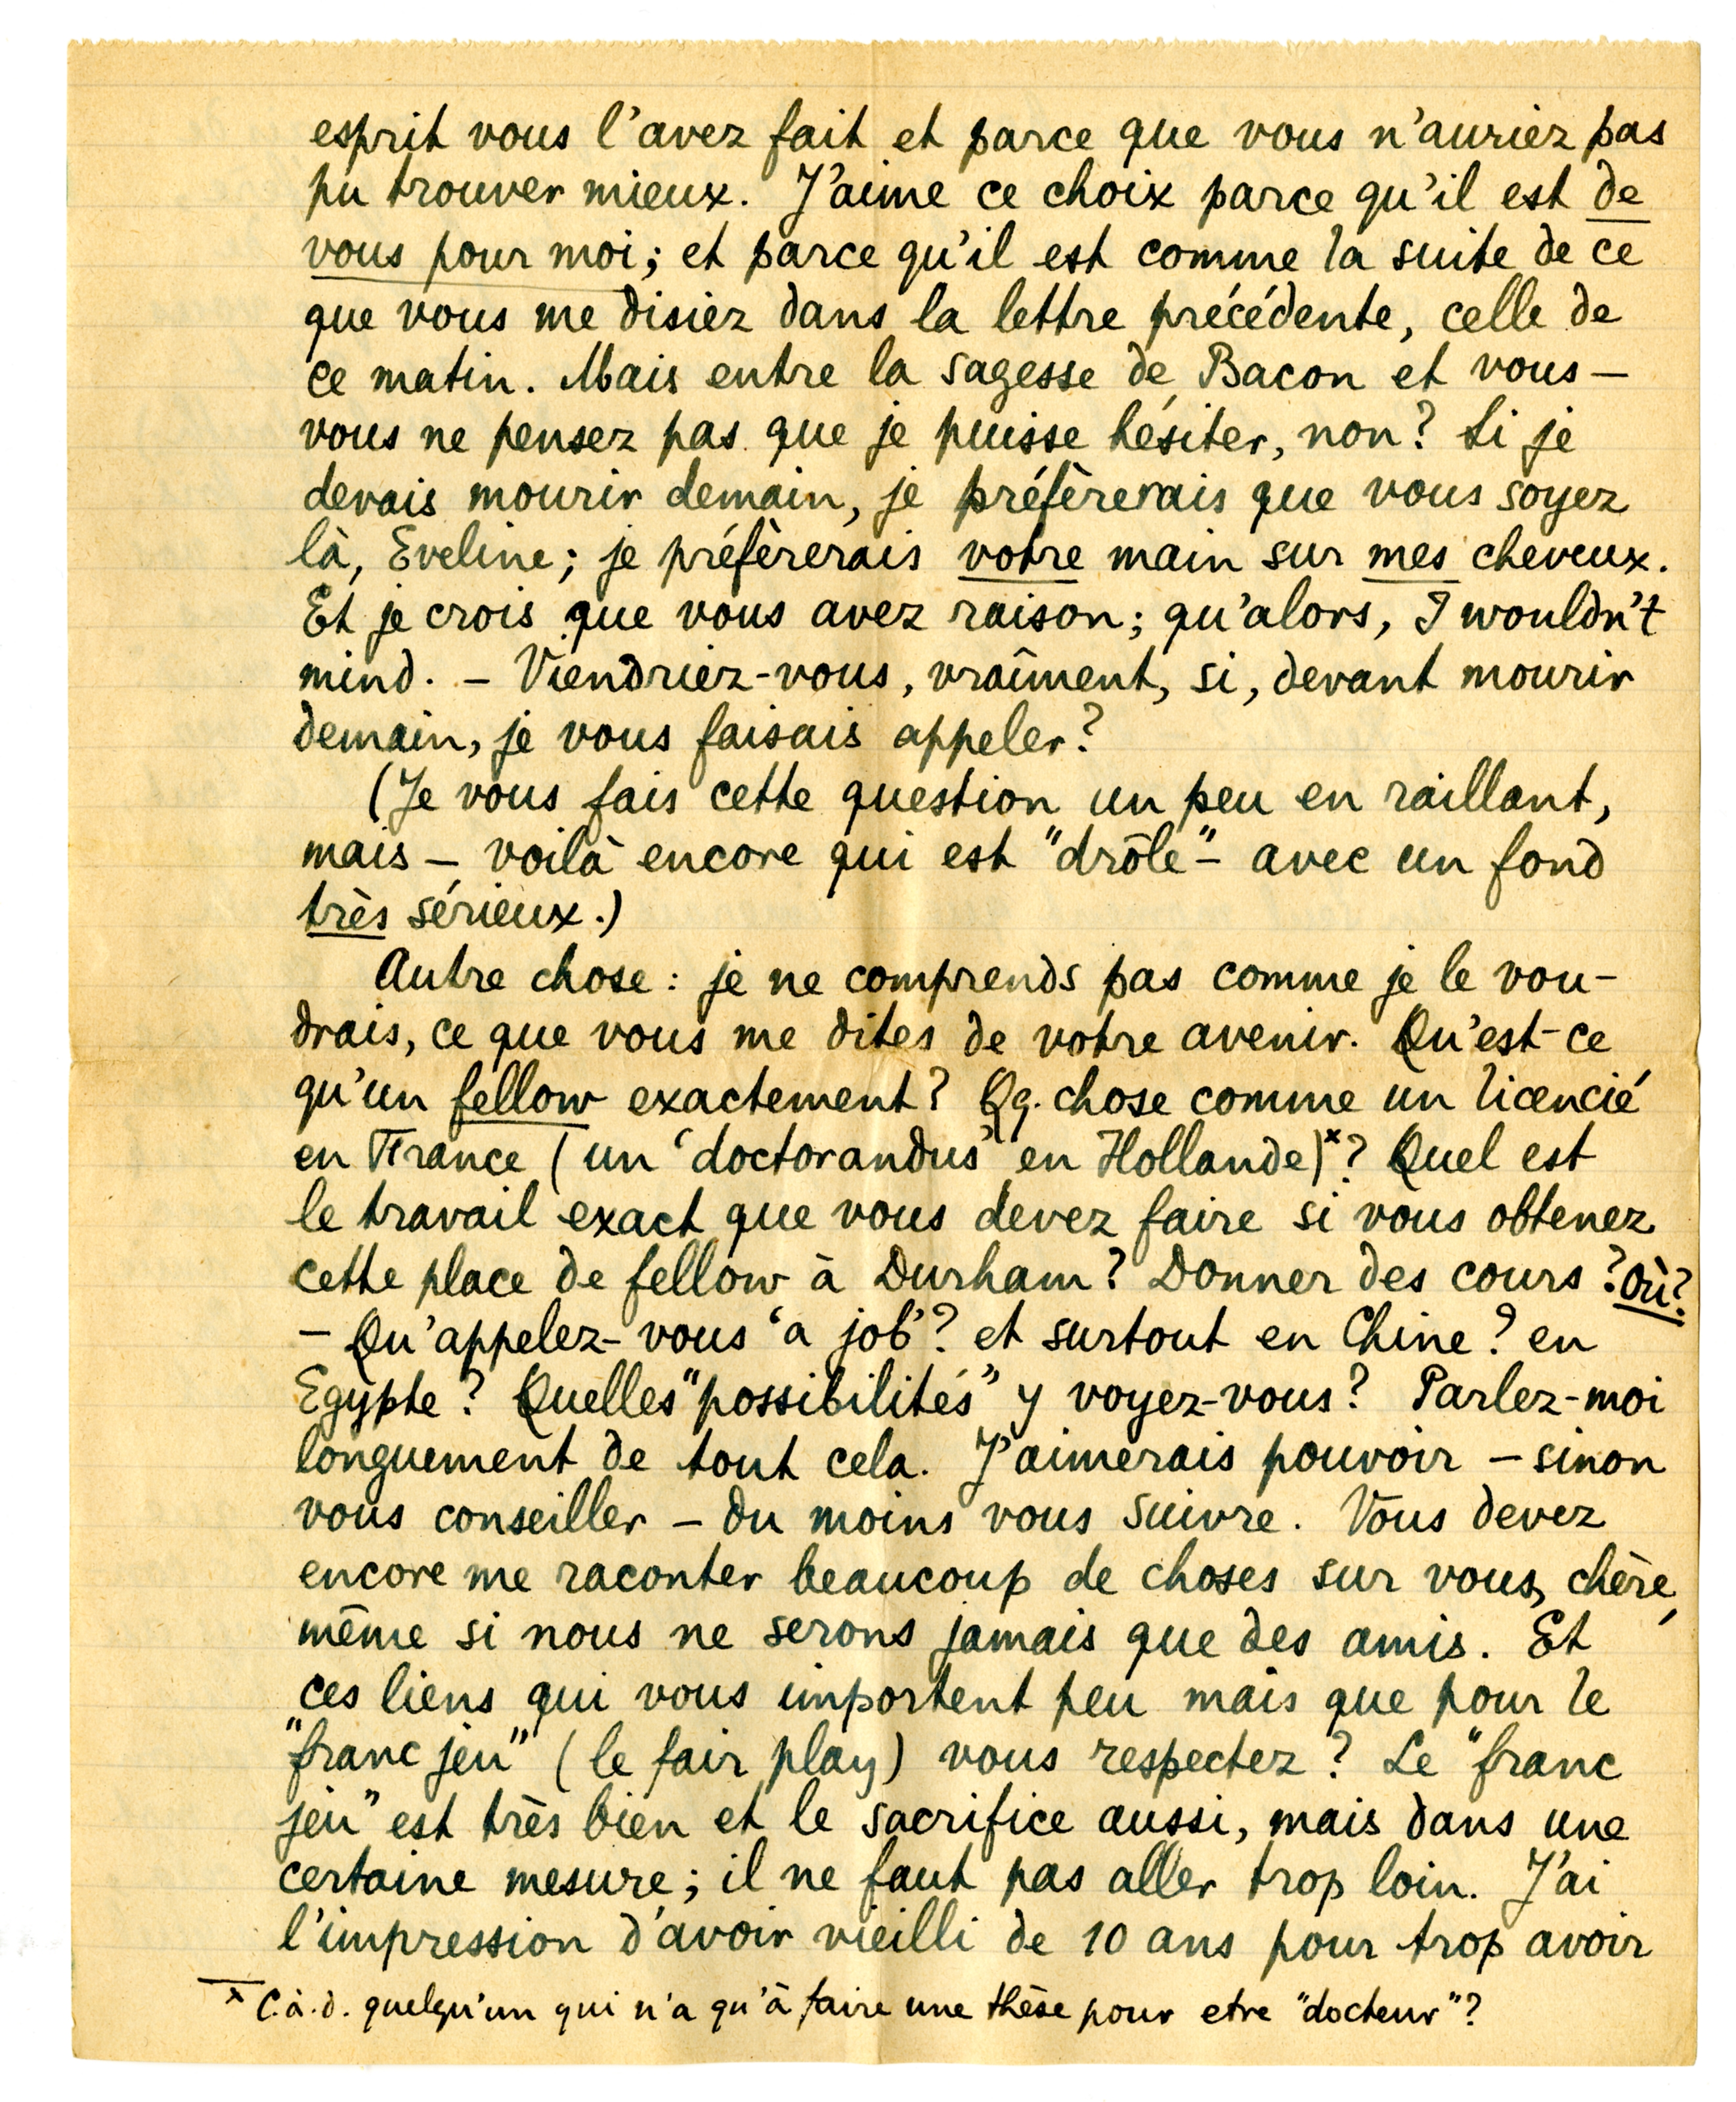 esprit vous l'avez fait et parce que vous n'auriez pas
pu trouver mieux. J'aime ce choix parce qu'il est de
vous pour moi; et parce qu'il est comme la suite de ce
que vous me disiez dans la lettre précédente, celle de
ce matin. Mais entre la sagesse de Bacon et vous —
vous ne pensez pas que je puisse hésiter, non? Si je
devais mourir demain, je préfèrerais que vous soyez
là, Eveline; je préfèrerais votre main sur mes cheveux.
Et je crois que vous avez raison; qu'alors, I wouldn't
mind. — Viendriez-vous, vraîment, si, devant mourir
demain, je vous faisais appeler?
(Je vous fais cette question un peu en raillant,
mais — voilà encore qui est "drôle" — avec un fond
très sérieux.)
Autre chose: je ne comprends pas comme je le vou-
drais, ce que vous me dites de votre avenir. Qu'est-ce
qu'un fellow exactement? Qq. chose comme un licencié
en France (un 'doctorandus' en Hollande)x? Quel est
le travail exact que vous devez faire si vous obtenez
cette place de fellow à Durham? Donner des cours? Où?
— Qu'appelez-vous 'a job'? et surtout en Chine? en
Egypte? Quelles "possibilités" y voyez-vous? Parlez-moi
longuement de tout cela. J'aimerais pouvoir — sinon
vous conseiller — du moins vous suivre. Vous devez
encore me raconter beaucoup de choses sur vous, chère,
même si nous ne serons jamais que des amis. Et
ces liens qui vous importent peu mais que pour le
"franc jeu" (le fair play) vous respectez? Le "franc
jeu" est très bien et le sacrifice aussi, mais dans une
certaine mesure; il ne faut pas aller trop loin. J'ai
l'impression d'avoir vieilli de 10 ans pour trop avoir
x C.à.d. quelqu'un qui n'a qu'à faire une thèse pour etre "docteur"?